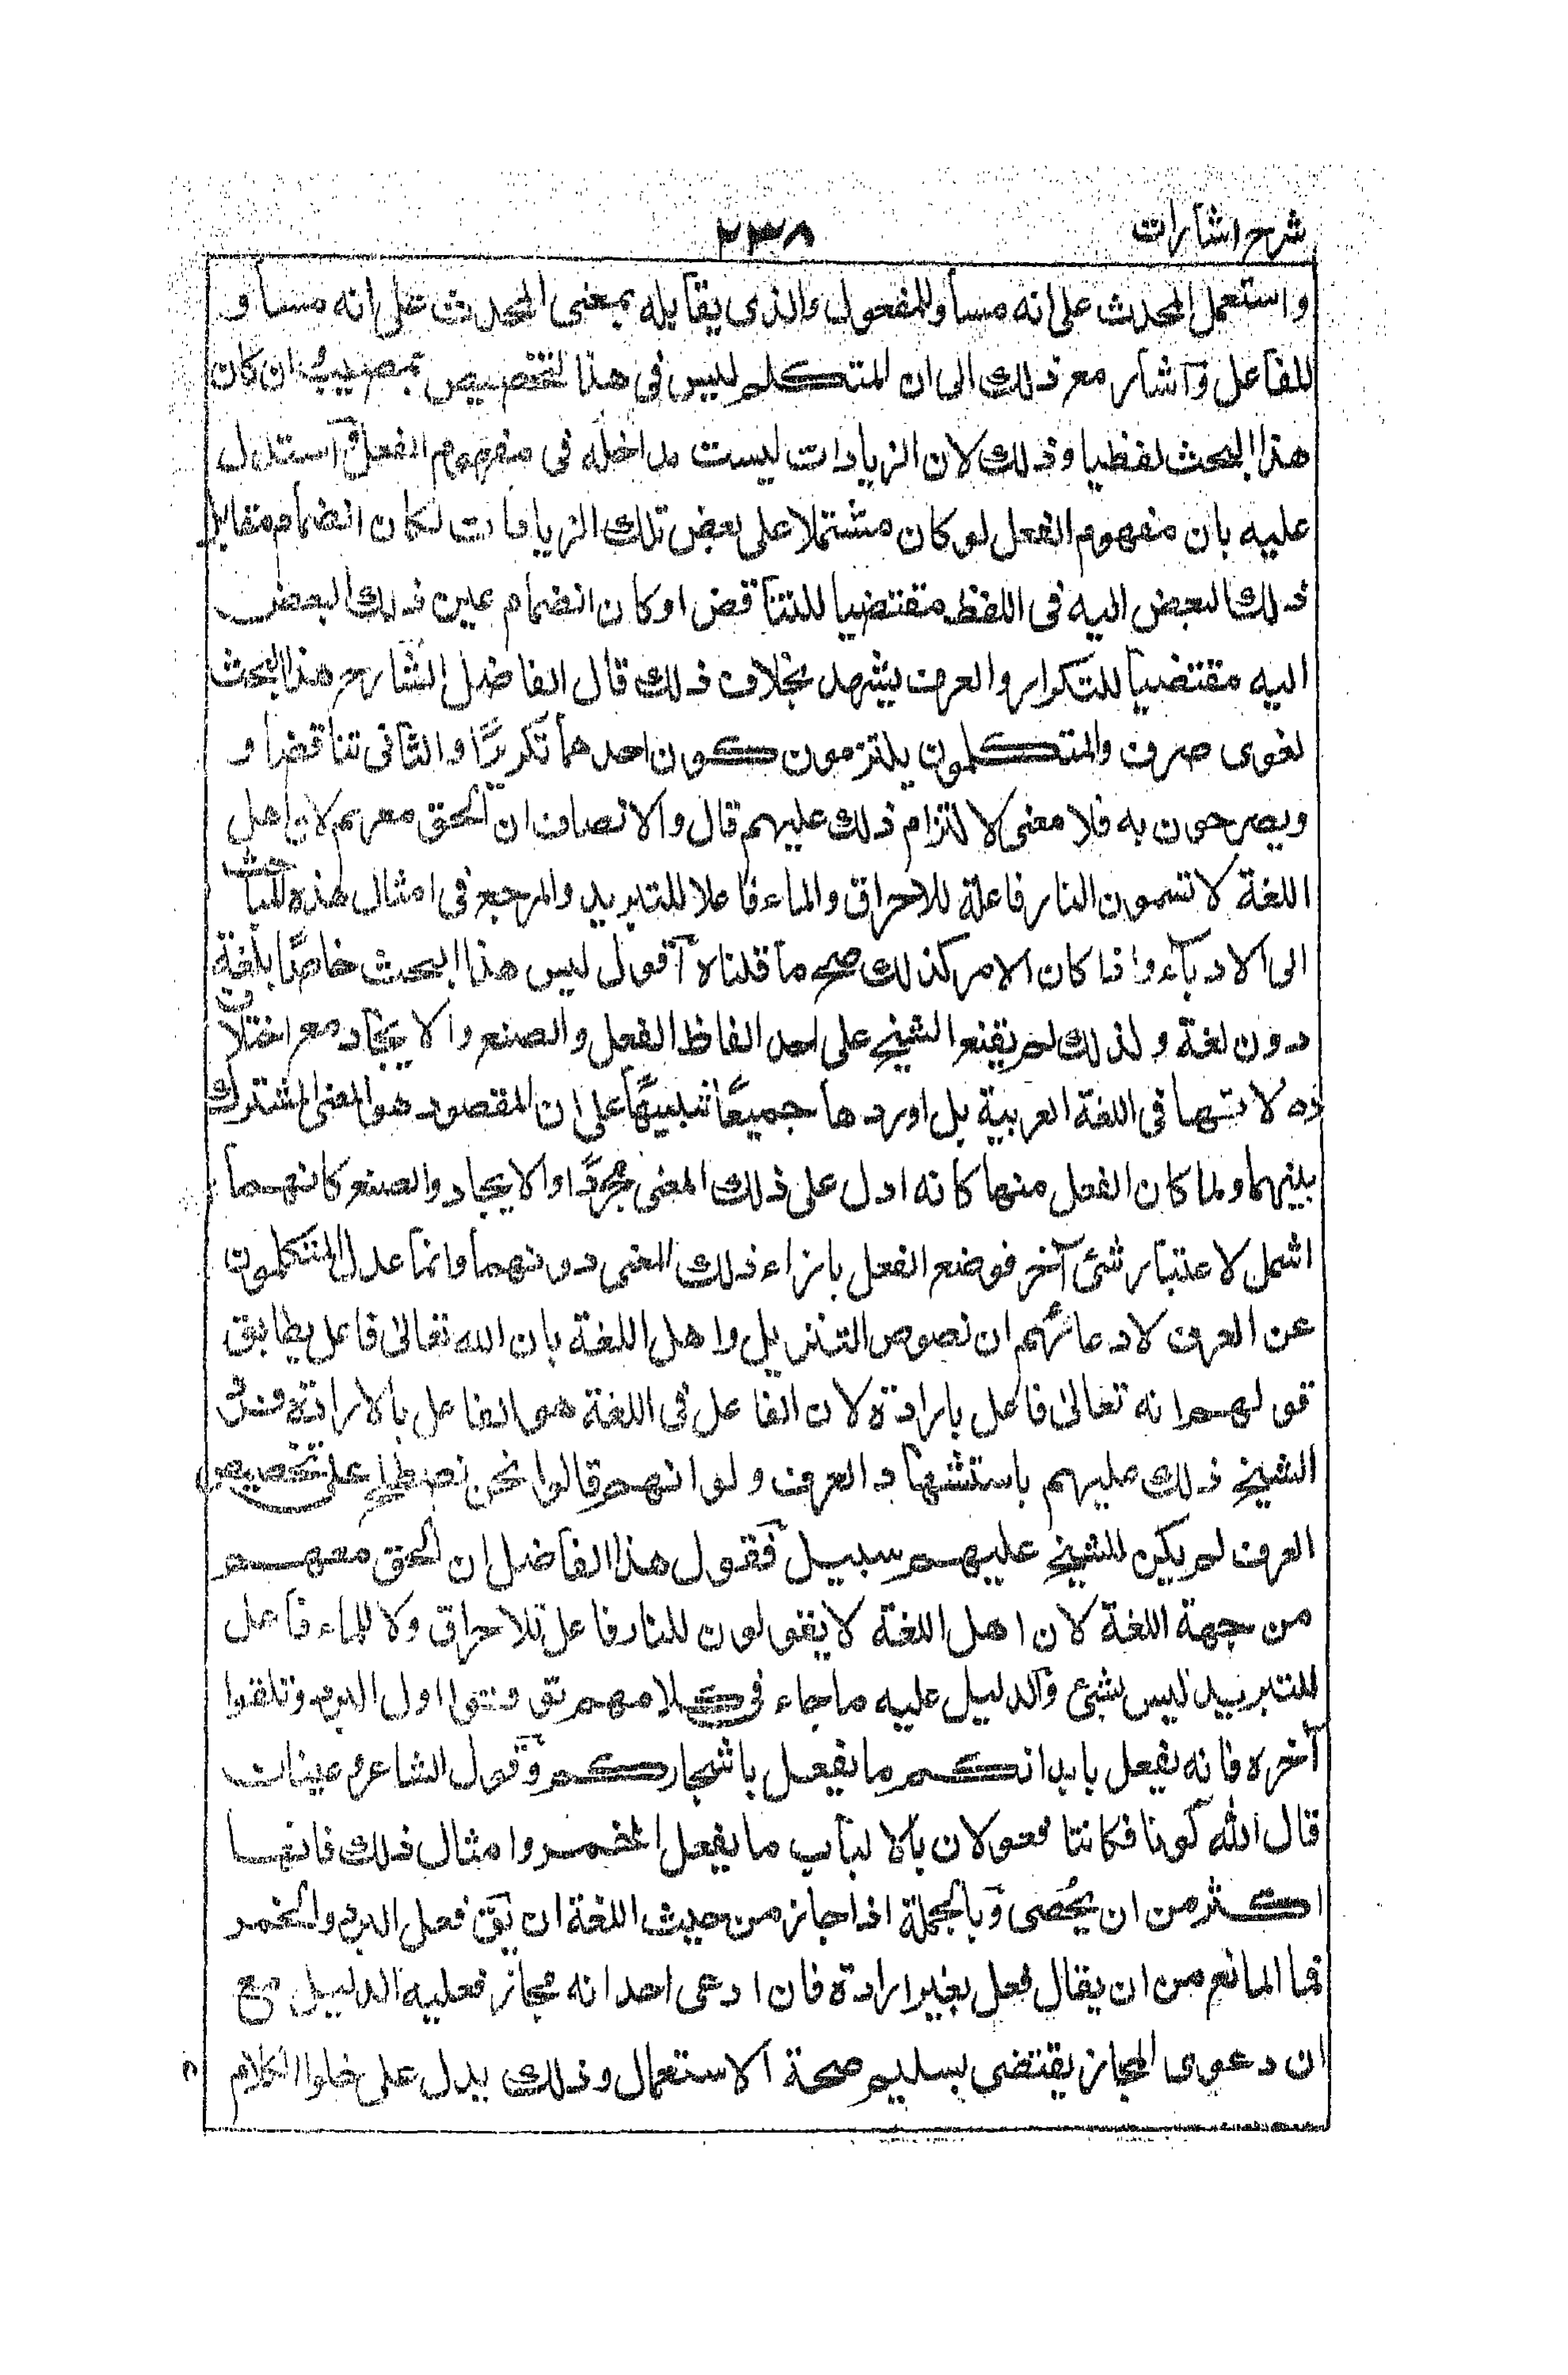 شرح اشارات ٢٣٨
واستعمل المحدث على انه مساو للمفعول والذى يقابله بمعنى المحدث على انه مساو
للفاعل وآشار مع ذلك الى ان المتكلم ليس فى هذا التخصيص بمصيب ان كان
هذا البحث لفظيا وذلك لان الزيادات ليست داخلة فى مفهوم الفعل وآستدل
عليه بان مفهوم الفعل لو كان مشتملا على بعض تلك الزيادات لكان انضمام مقابل
ذلك البعض اليه فى اللفظ مقتضيا للتناقض او كان انضمام عين ذلك البعض
اليه مقتضيا للتكرار والعرف يشهد بخلاف ذلك قال الفاضل الشارح هذا البحث
لغوى صرف والمتكلمون يلتزمون كون احدهما تكريرًا والثانى تناقضا و
ويصرحون به فلا معنى لالزام ذلك عليهم قال والانصاف ان الحق معهم لان اهل
اللغة لا تسمون النار فاعلة للاحراق والماء فاعلا للتبريد والمرجع فى امثال هذه المباحث
الى الادبآء واذا كان الامر كذلك صح ما قلناه آقول ليس هذا البحث خاصًا بلغة
دون لغة ولذلك لم يقنع الشيخ على احد الفاظ الفعل والصنع والايجاد مع اختلاف
دلالاتها فى اللغة العربية بل اوردها جميعًا تنبيهًا على ان المقصود هو المعنى المشترك
بينهما ولما كان الفعل منها كانه ادل على ذلك المعنى مجردًا والايجاد والصنع كانهما
اشمل لاعتبار شئ آخر فوضع الفعل بازاء ذلك المعنى دونهما وانما عدل المتكلمون
عن العرف لادعائهم ان نصوص التنزيل واهل اللغة بان الله تعالى فاعل يطابق
قولهم انه تعالى فاعل بارادة لان الفاعل فى اللغة هو الفاعل بالارادة فرد
الشيخ ذلك عليهم باستشهاد العرف ولو انهم قالوا نحن نصطلح على تخصيص
العرف لم يكن للشيخ عليهم سبيل فقول هذا الفاضل ان الحق معهم
من جهة اللغة لان اهل اللغة لا يقولون للنار فاعل للاحراق ولا للماء فاعل
للتبريد ليس بشئ والدليل عليه ما جاء فى كلامهم تق وتوقوا اول البرد وتلقوا
آخره فانه يفعل بابدانكم ما يفعل باشجاركم وقول الشاعر ع عينان
قال الله كونا فكانتا فعولان بالالباب ما يفعل الخمر وامثال ذلك فانها
اكثر من ان يحصى وبالجملة اذا جاز من حيث اللغة ان يق فعل البرد والخمر
فما المانع من ان يقال فعل بغير ارادة فان ادعى احد انه مجاز فعليه الدليل مع
ان دعوى المجاز يقتضى بسليم صحة الاستعمال وذلك يدل على خلوا الكلام